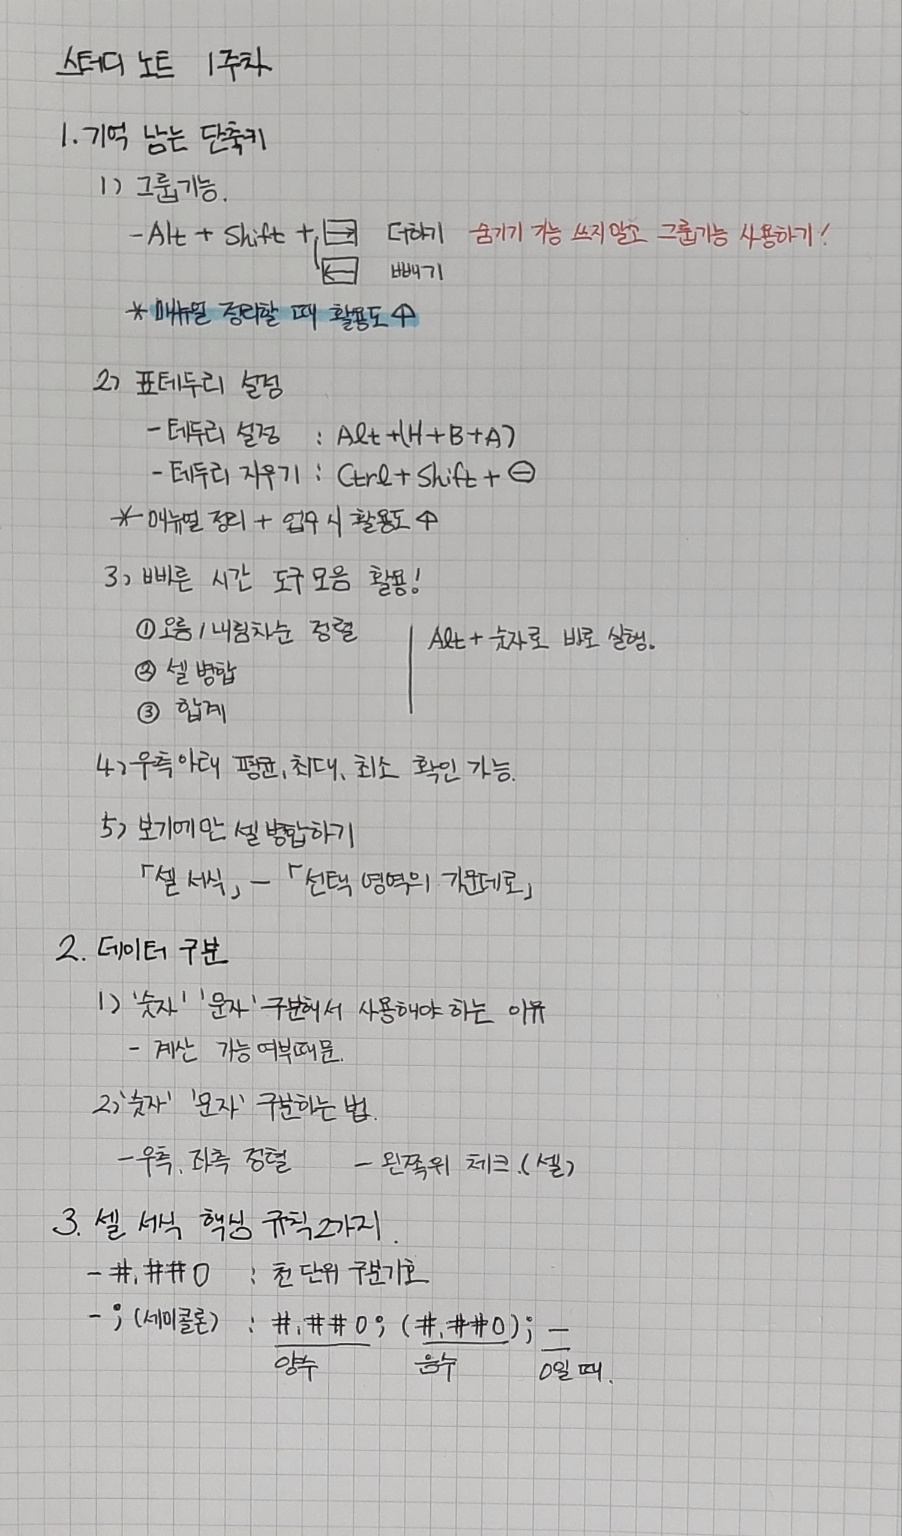 스터디 노트 1주차
1. 기억 남는 단축키
1) 그룹기능.
- Alt + Shift + → 더하기 숨기기 기능 쓰지말고 그룹기능 사용하기!
← 빼기
* 매뉴얼 정리할 때 활용도 ↑
2) 표테두리 설정
- 테두리 설정 : Alt + (H+B+A)
- 테두리 지우기 : Ctrl + Shift + ⊖
* 매뉴얼 정리 + 업무 시 활용도 ↑
3) 빠른 시간 도구 모음 활용!
① 오름/내림차순 정렬
Alt + 숫자로 바로 실행.
② 셀 병합
③ 합계
4) 우측 아래 평균, 최대, 최소 확인 가능.
5) 보기에만 셀 병합하기
「셀 서식」 - 「선택 영역의 가운데로」
2. 데이터 구분
1) '숫자' '문자' 구분해서 사용해야 하는 이유
- 계산 가능 여부때문.
2) '숫자' '문자' 구분하는 법.
- 우측, 좌측 정렬 - 왼쪽위 체크.(셀)
3. 셀 서식 핵심 규칙 2가지.
- #,##0 : 천 단위 구분기호
- ; (세미콜론) : #,##0; (#,##0); -
양수 음수 0일 때.